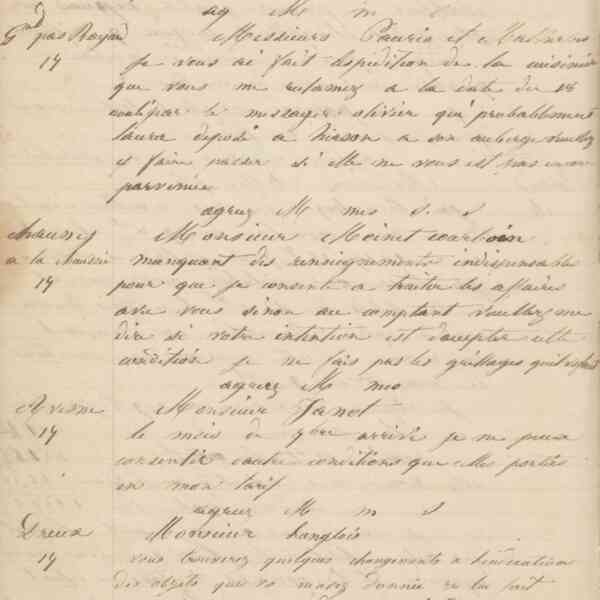 ag M m
Gd pas Bayard Messieurs Pauris et
14 je vous ai fait l'espedition de la cuisiniere
que vous me reclamez a la date du 18
cout par le messager olivier qui probablement
laura deposé a hirson a son auberge veuillez
y faire passer si elle ne vous est pas encore
parvenue
agrez M mes s. s
chauny Monsieur Moinet courboin
a la chaussée manquant des renseignements indispensable
14 pour que je consente a traiter les affaires
avec vous sinon au comptant veuillez me
dire si votre intention est d'accepter cette
condition je ne fais pas les grillages
agrez M mo
Avesne Monsieur Janot
14 le mois de 9bre arrivé je ne peux
consentir d'autre conditions que celles portées
en mon tarif
agrez M m s
Dreux Monsieur Langlois
14 vous trouverez quelques changements a l'enumeration
des objets que vs mavez donnée ce la fait